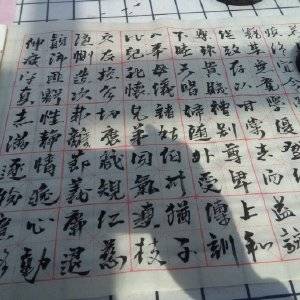 無竟學優登仕
從政存以甘棠去而益詠
樂殊貴賤禮別尊卑上和
下睦夫唱婦隨外受傅訓
入奉母儀諸姑伯叔猶子
比兒孔懷兄弟同氣連枝
交友投分切磨箴規仁慈
隱惻造次弗離節義廉退
顛沛匪虧性靜情逸心動
神疲守真志滿逐物意移